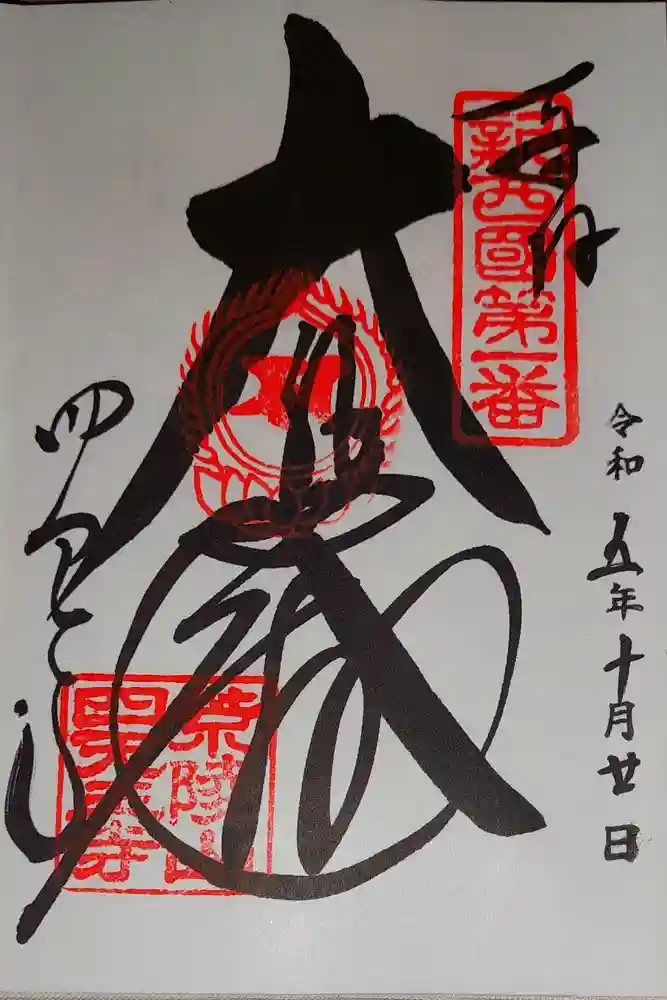 奉拝
新西國第一番
大
令和五年十月廿日
四天王寺
荒陵山
四天王寺